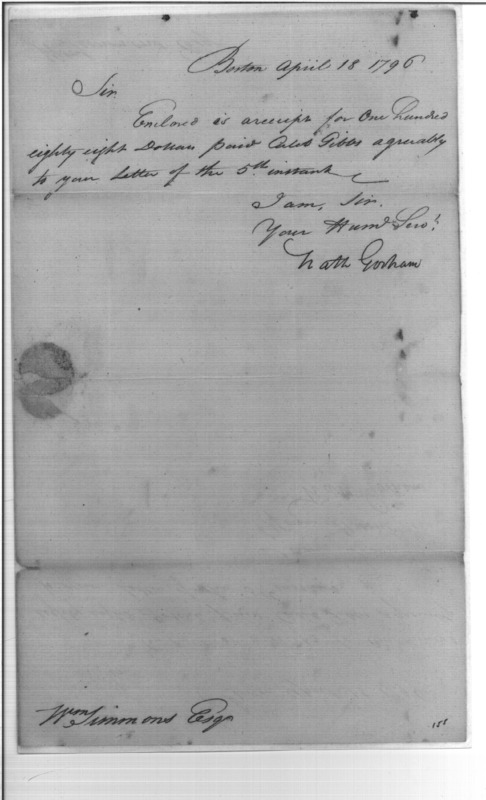 Boston April 18 1796
Sir
Enclosed is a receipt for One hundred
eighty eight Dollars paid Caleb Gibbs agreably
to your Letter of the 5th instant
I am, Sir.
Your Humd Servt
Nath Gorham
Wm Simmons Esqr
188